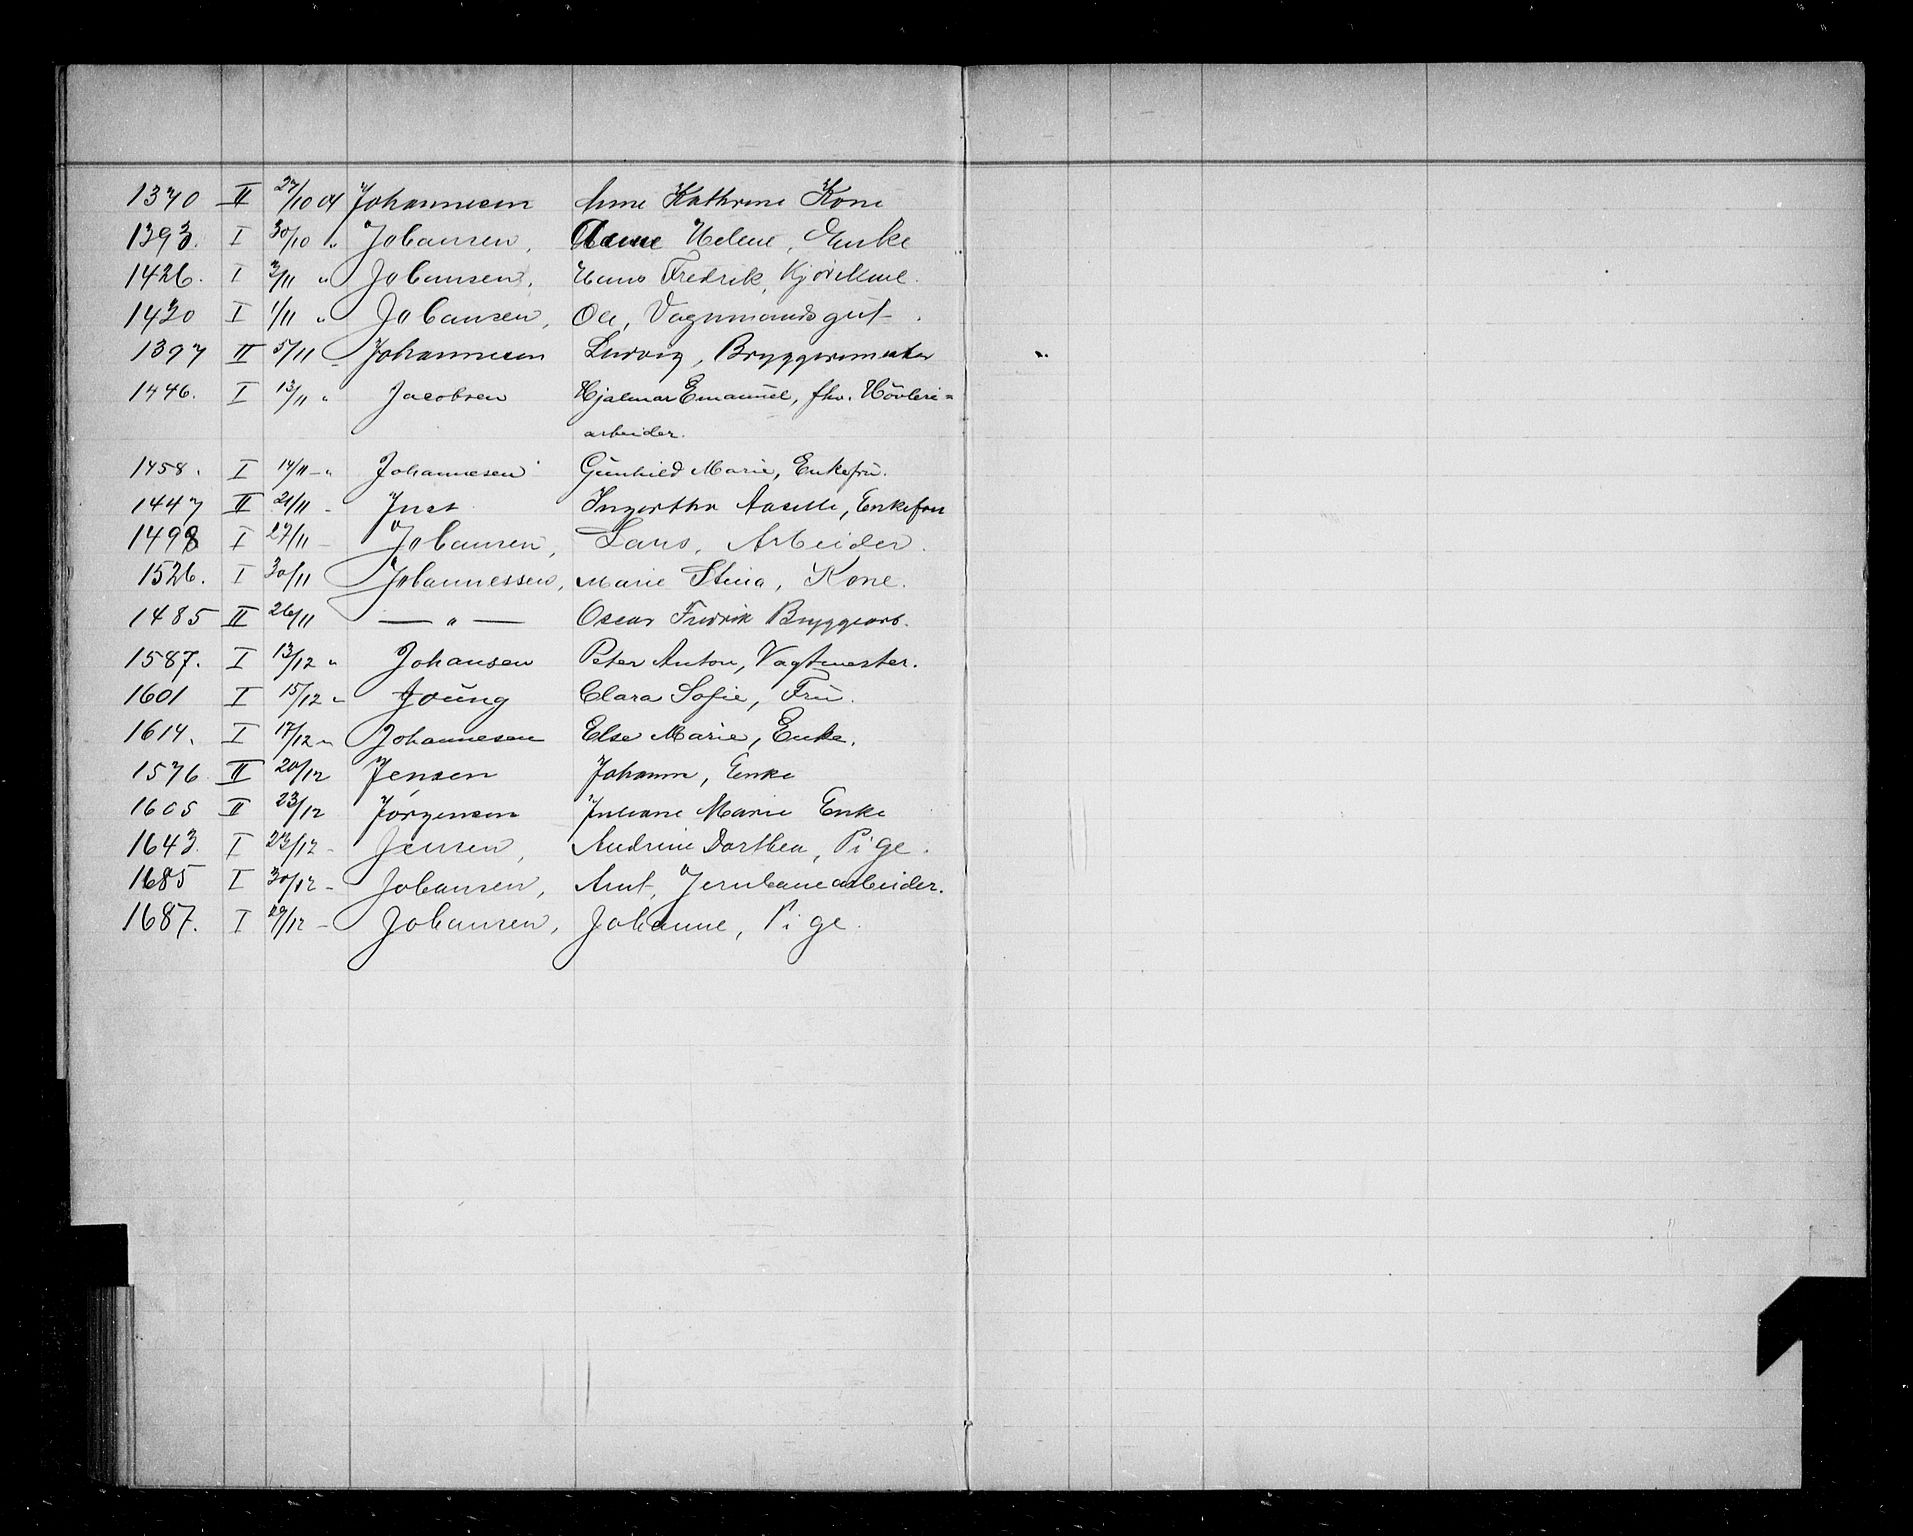 1370 II 27/10 04 Johannesen Anne Kathrine Kone
1393. I 30/10 " Johansen, Anne Helene, Enke
1426. I 3/11 " Johansen, Hans Fredrik, Kjøremnd.
1420 I 1/11 " Johansen, Ole, Vognmandsgut.
1397 II 5/11 - Johannesen Ludvig, Bryggerimester
1446. I 13/11 " Jacobsen Hjalmar Emanuel, fhv. Høvleri=
arbeider.
1458. I 14/11 - " Johannesen Gunhild Marie, Enkefru.
1447 II 21/11 - Just Ingertha Aaselle, Enkefru
1498 I 27/11 - Johansen, Lars, Arbeider.
1526. I 30/11 Johannessen, Marie Stina, Kone.
1485 II 26/11 — " — Oscar Fredrik Bryggearb.
1587. I 13/12 " Johansen Peter Anton, Vagtmester.
1601 I 15/12 " Joung Clara Sofie, Fru.
1614. I 17/12 " Johannesen Else Marie, Enke.
1576. II 20/12 Jensen Johanne, Enke
1605 II 23/12 Jørgensen Juliane Marie Enke
1643. I 23/12 - Jensen, Andrine Dorthea, Pige.
1685 I 30/12 - Johansen, Arnt, Jernbanearbeider.
1687. I 29/12 - Johansen, Johanne, Pige.